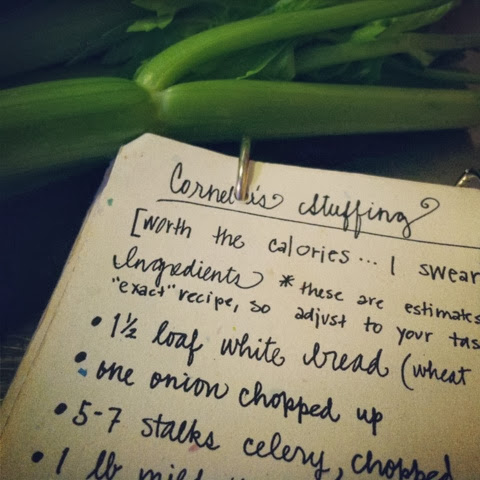 stuffing
[worth the calories... I swear
Ingredients * these are estimates
"exact" recipe, so adjust to your tas
• 1½ loaf white bread (wheat
• one onion chopped up
• 5-7 stalks celery, chopped
• 1 lb mild